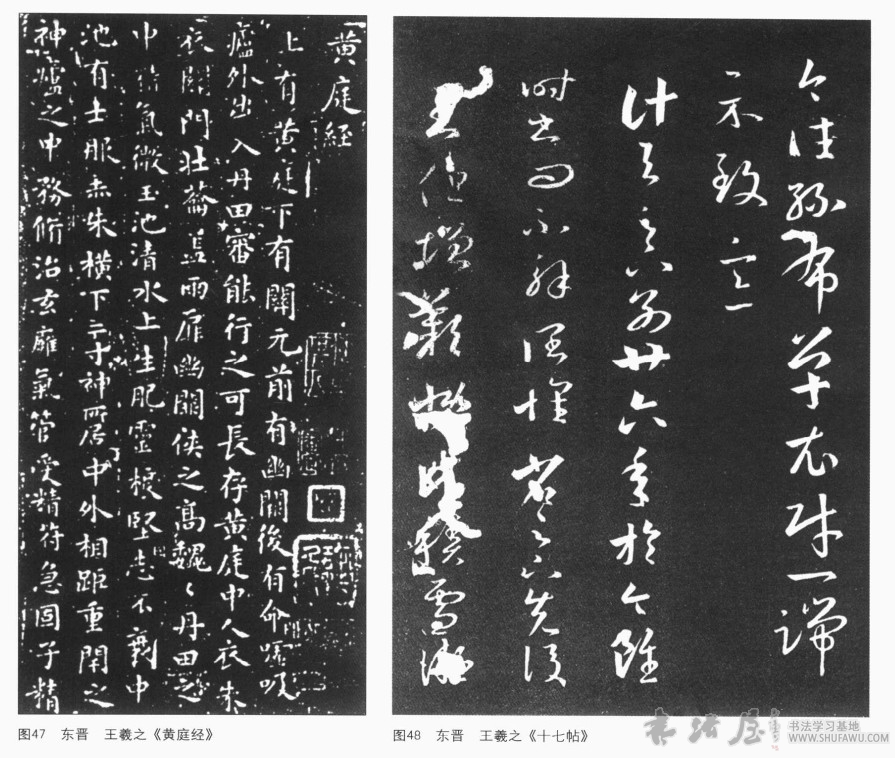 黄庭経
上有黄庭下有關元前有幽關後有命噓吸
廬外出入丹田審能行之可長存黄庭中人衣朱
衣關門壯籥蓋兩扉幽關俠之高魏〻丹田之
中精氣微玉池清水上生肥靈根堅志不衰中
池有士服赤朱橫下三寸神所居中外相距重閇之
神廬之中務脩治玄膺氣管受精符急固子精
图47 东晋 王羲之《黄庭经》
今往絲布單衣財一端
示致意
計与足下別廿六年於今雖
時書問不解闊懷省足下先後
二書但增歎慨頃積雪凝
图48 东晋 王羲之《十七帖》
书法屋
书法学习基地
WWW.SHUFAWU.COM